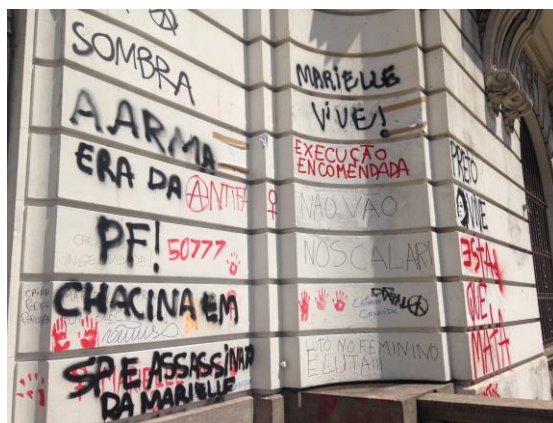 SOMBRA
A ARMA
ERA DA
ANTIFA
PF!
50777
CHACINA EM
SP E ASSASSINATO
DA MARIELLE
MARIELLE
VIVE!
EXECUÇÃO
ENCOMENDADA
NÃO VÃO
NOS CALAR!
LUTO NO FEMININO
É LUTA!!!
PRETO
VIVE
ESTADO
QUE
MATA